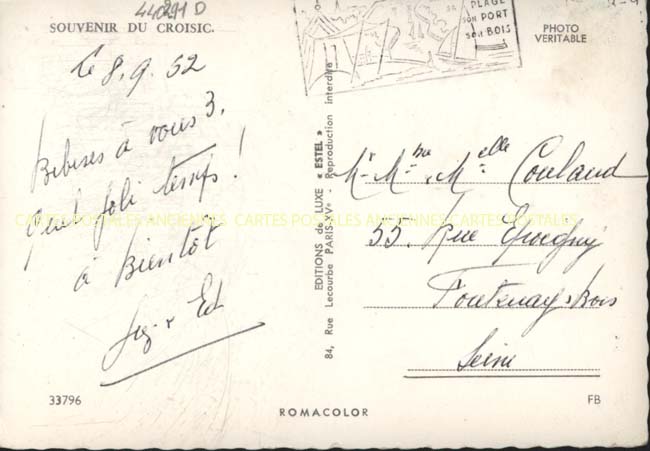 44291 D
SOUVENIR DU CROISIC.
Le 8.9.52
à vous 3.
Quel joli temps !
à Bientôt
Ed
PLAGE
SON PORT
SON BOIS
PHOTO
VERITABLE
EDITIONS de LUXE « ESTEL »
84, Rue Lecourbe PARIS-XVe - Reproduction interdite
Mr Mme Melle Coulaud
55. Rue
Fontenay s Bois
Seine
CARTES POSTALES ANCIENNES CARTES POSTALES ANCIENNES CARTES POSTALES
33796
ROMACOLOR
FB